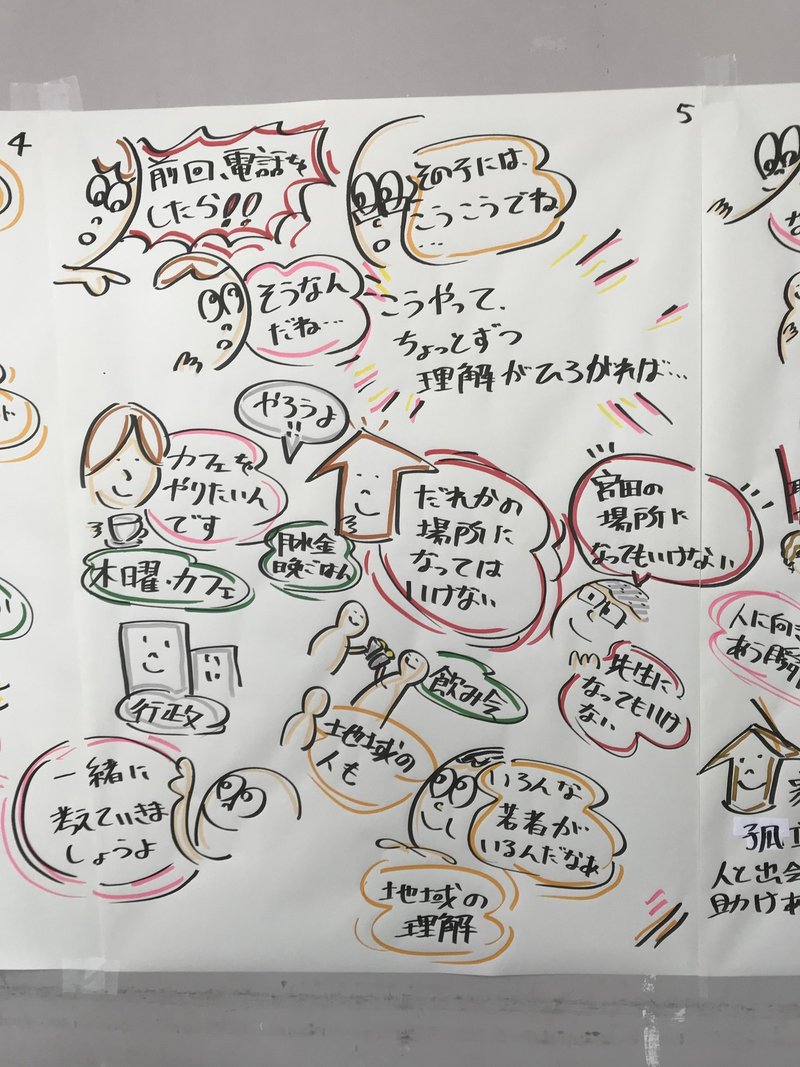 4
5
前回、電話を
したら!!
その子には、
こうこうでね
…
そうなん
だね…
こうやって、
ちょっとずつ
理解がひろがれば…
やろうよ
カフェを
やりたいん
です
木曜・カフェ
月水金
晩ごはん
だれかの
場所に
なっては
いけない
宮田の
場所に
なってもいけない
先生に
なってもいけ
ない
行政
飲み会
地域の
人も
一緒に
考えていきま
しょうよ
いろんな
若者が
いるんだなぁ
地域の
理解
人に向き
あう瞬
人と出会
助けあ